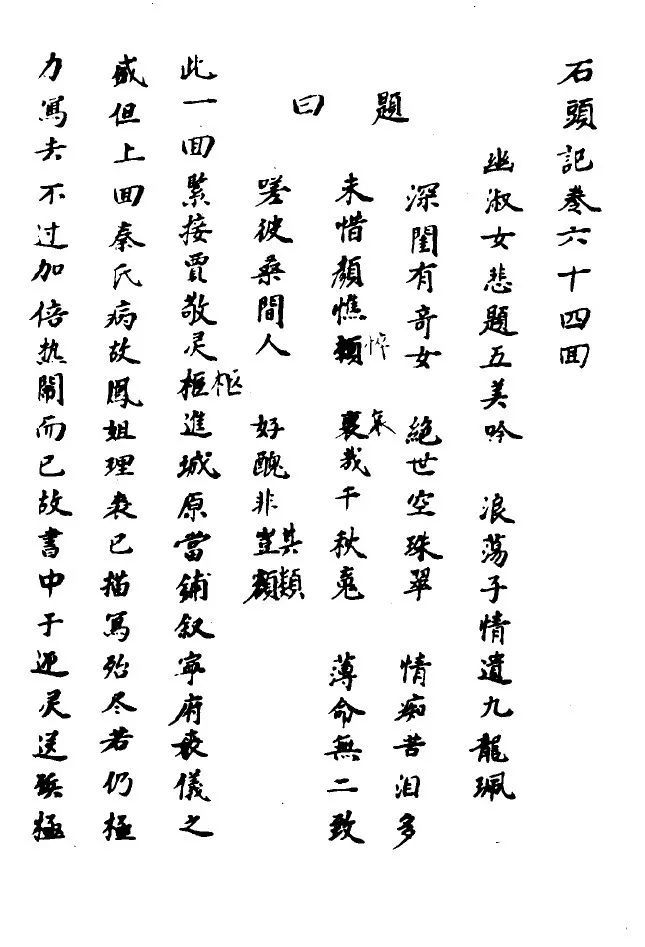 石頭記卷六十四囬
幽淑女悲題五美吟 浪蕩子情遺九龍珮
題曰
深閨有奇女 絕世空珠翠 情痴苦泪多
未惜顏憔悴 哀哉千秋䰟 薄命無二致
嗟彼桑間人 好醜非其類
此一囬緊接賈敬灵柩進城原當鋪叙寧府喪儀之
盛但上囬秦氏病故鳳姐理喪已描寫殆尽若仍極
力寫去不过加倍热鬧而已故書中于迎灵送殯極